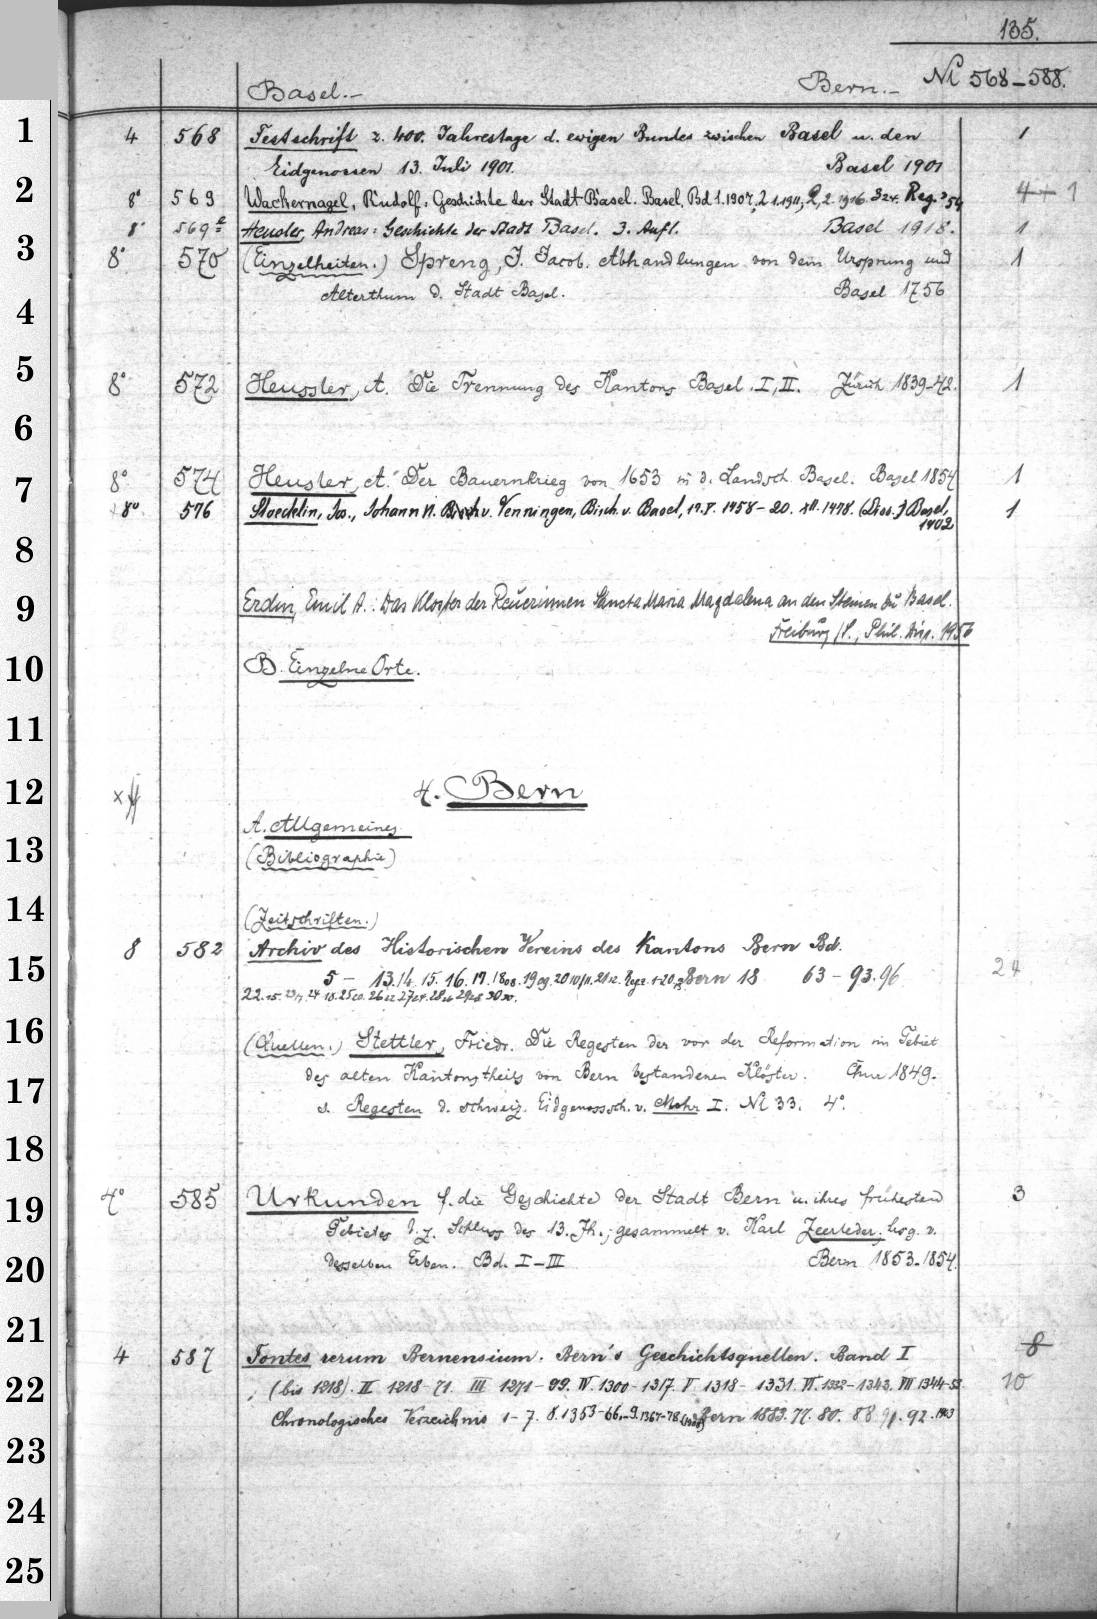 135.
Basel.- Bern.- № 568-588.
1
4 568 Festschrift z. 400. Jahrestage d. ewigen Bundes zwischen Basel u. den 1
Eidgenossen 13. Juli 1901. Basel 1901
2
8° 569 Wackernagel, Rudolf: Geschichte der Stadt Basel. Basel, Bd 1. 1907, 2 1. 1911, 2, 2. 1916. 3 1924. Reg. 54 4+ 1
8° 569ª Heusler, Andreas: Geschichte der Stadt Basel. 3. Aufl. Basel 1918. 1
3
8° 570 (Einzelheiten.) Spreng, J. Jacob. Abhandlungen von dem Ursprung und 1
Alterthum d. Stadt Basel. Basel 1756
4
5
8° 572 Heussler, A. Die Trennung des Kantons Basel. I, II. Zürich 1839-42. 1
6
7
8° 574 Heusler, A. Der Bauernkrieg von 1653 in d. Landsch. Basel. Basel 1854 1
8° 576 Stoecklin, Jos., Johann VI. v. Venningen, Bisch. v. Basel, 17. V. 1458 - 20. XII. 1478. (Diss.) Basel, 1
1902
8
9
Erdin, Emil A.: Das Kloster der Reuerinnen Sancta Maria Magdalena an den Steinen zu Basel.
Freiburg /S., Phil. Diss. 1956
10
B. Einzelne Orte.
11
12
4. Bern
A. Allgemeines
13
(Bibliographie)
14
(Zeitschriften.)
8 582 Archiv des Historischen Vereins des Kantons Bern Bd.
15
5 - 13. 14. 15. 16. 17. 1808. 19 09. 20 10/11. 21 12. Bern 18 63 - 93. 96 24
22. 15. 23 17. 24 18. 25 20. 26 22 27 24. 28 26 29 28 30 30.
16
(Quellen.) Stettler, Friedr. Die Regesten der vor der Reformation im Gebiet
des alten Kantonstheils von Bern bestandenen Klöster. Chur 1849.
17
s. Regesten d. schweiz. Eidgenosssch. v. Mohr I. № 33. 4°.
18
4° 585 Urkunden f. die Geschichte der Stadt Bern u. ihres frühesten 3
19
Gebietes b. z. Schluss des 13. Jh.; gesammelt v. Karl Zeerleder, hrsg. v.
20
desselben Erben. Bd. I-III Bern 1853-1854.
21
4 587 Fontes rerum Bernensium. Bern's Geschichtsquellen. Band I 8
22
(bis 1218). II 1218-71. III 1271-99. IV. 1300-1317. V 1318-1331. VI. 1332-1343. VII 1344-53 10
Chronologisches Verzeichnis 1-7. 8. 1353-66. 9. 1367-78 (1908) Bern 1883. 77. 80. 88 91. 92. 1903
23
24
25